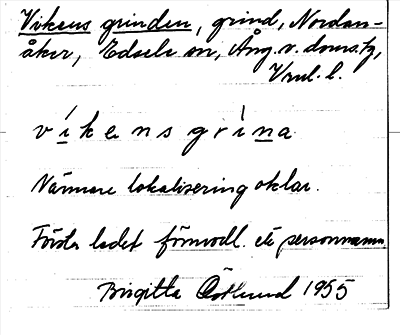 Vikens grinden, grind, Nordan-
åker, Edsele sn, Ång. v. doms.
v i k e n s g r i n a
Närmare lokalisering oklar.
Första ledet förmodl. ett personnamn
Birgitta Östlund 1955